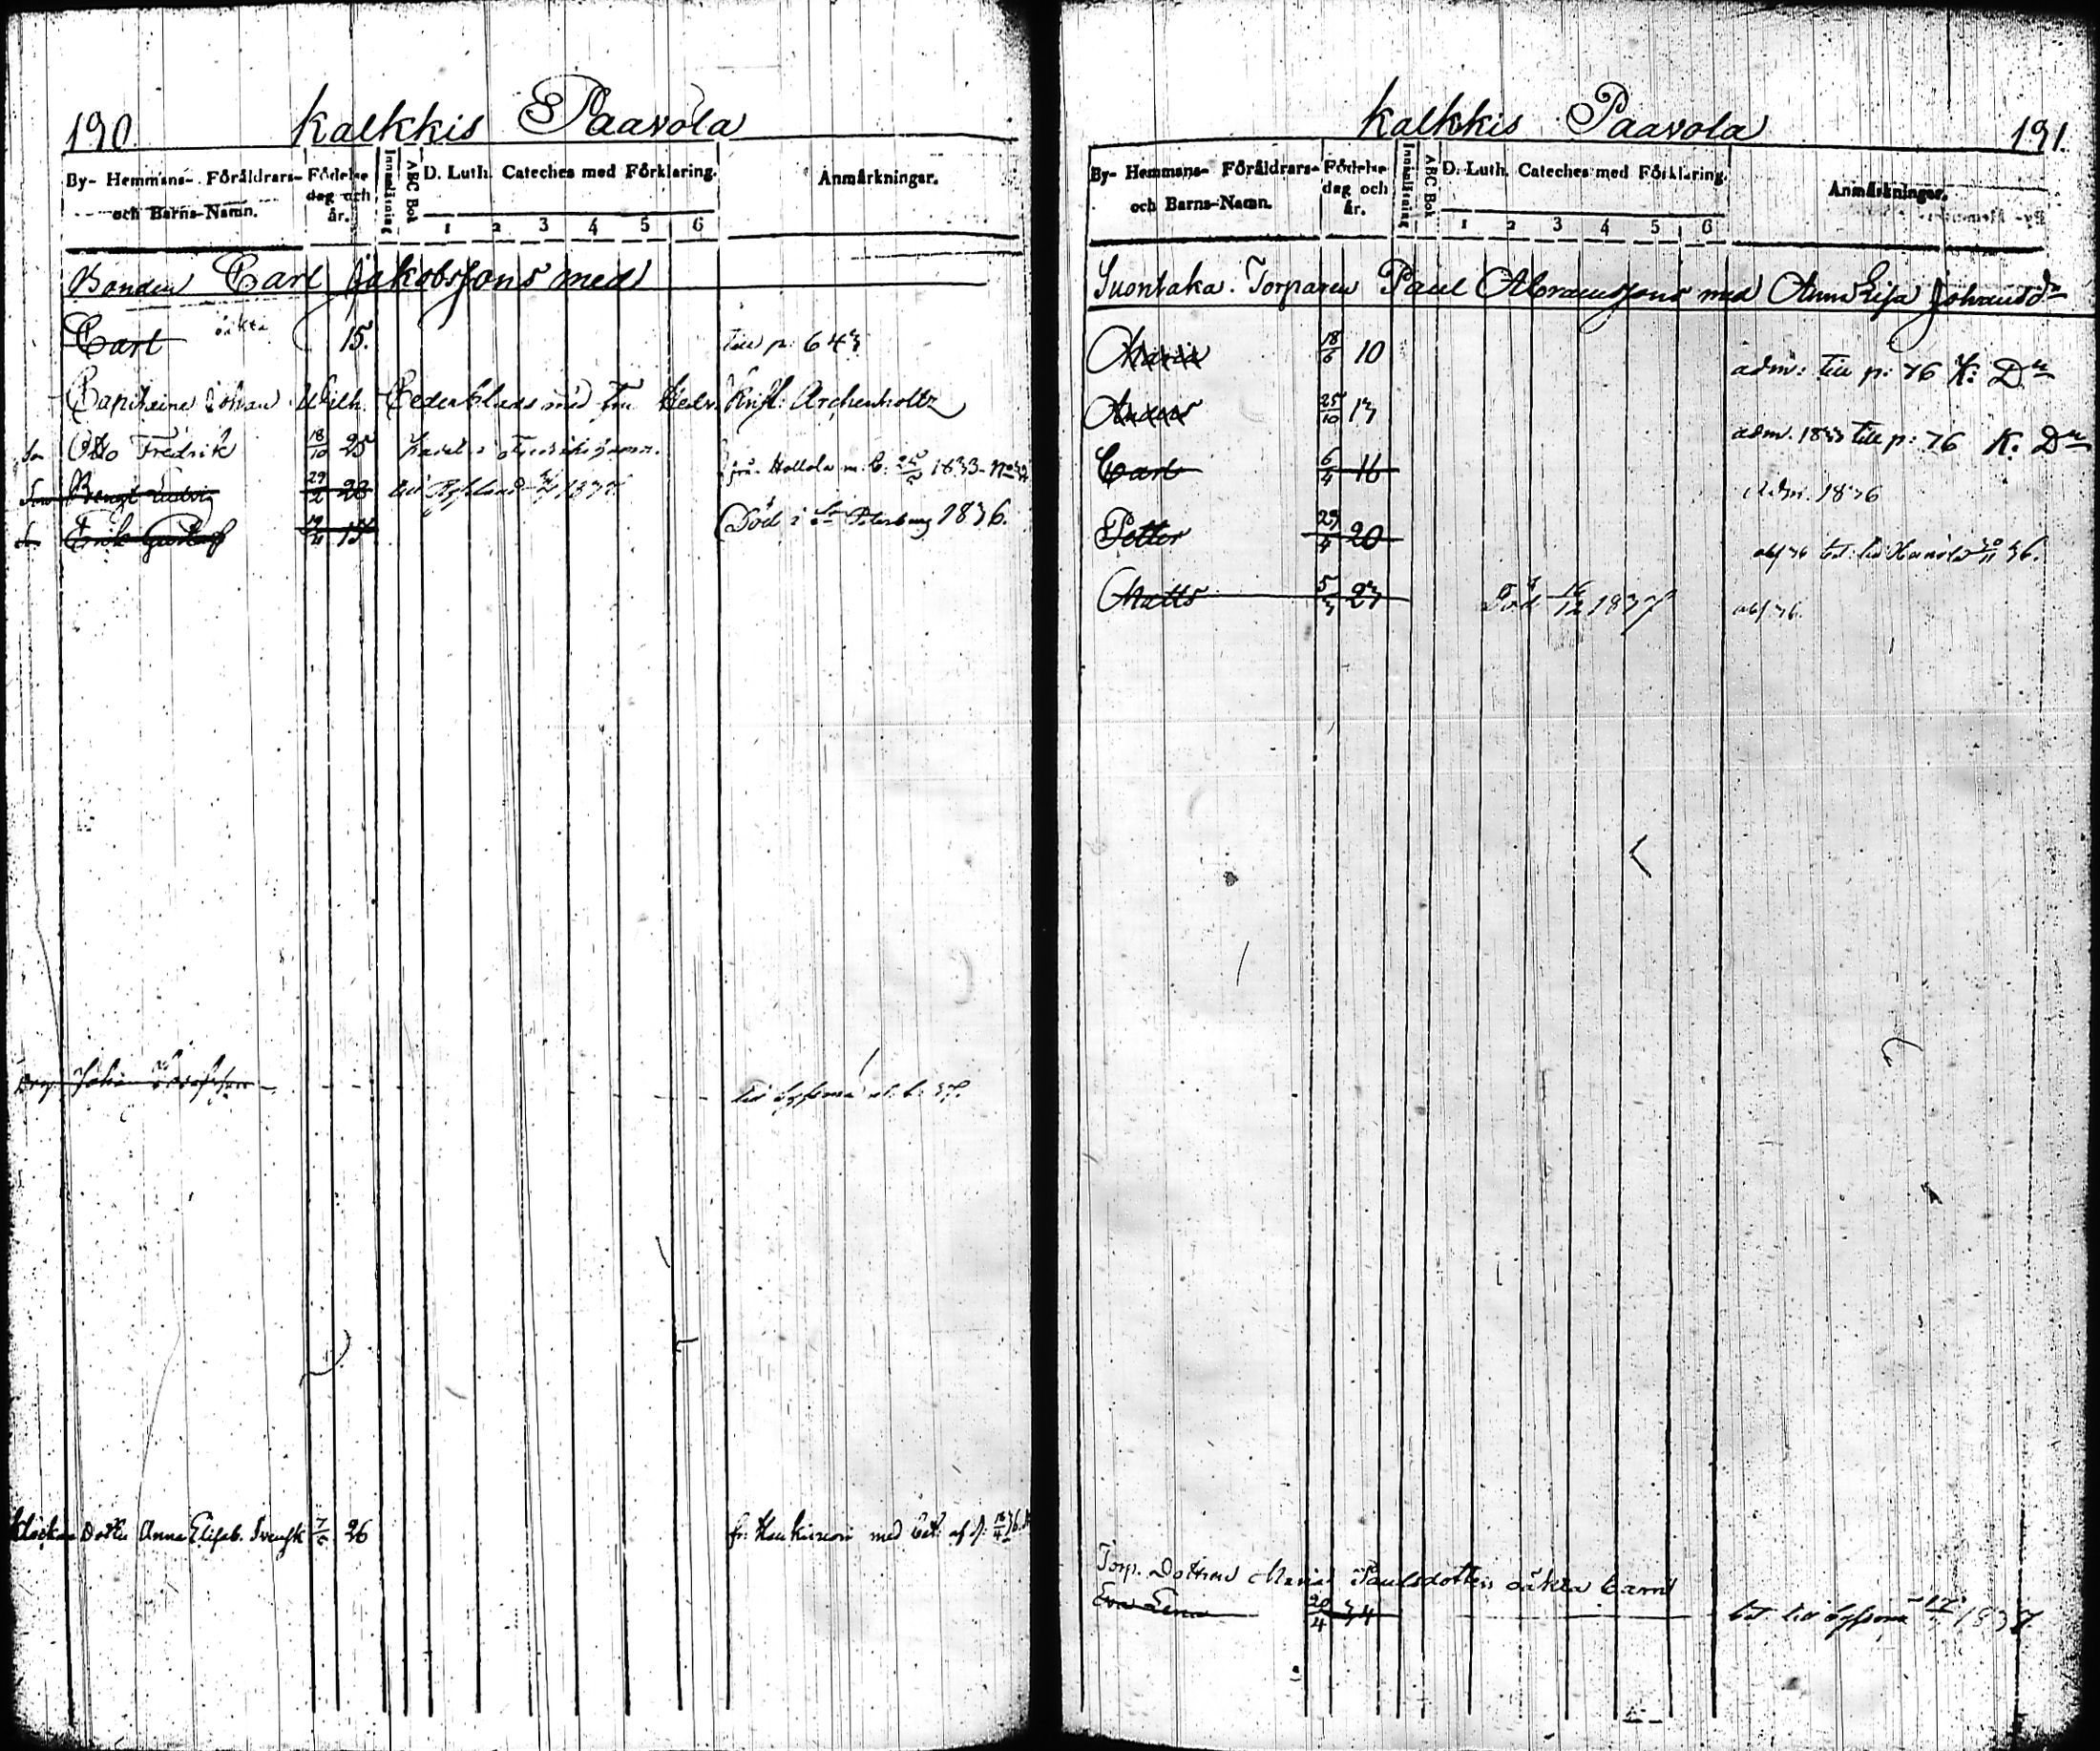 190.
kalkkis Paavola
By- Hemmans- Föräldrars- och Barns-Namn.
Födelse dag och år.
Innanläsning
ABC Bok
D. Luth. Cateches med Förklaring.
1 2 3 4 5 6
Anmärkningar.
Bonden Carl Jakobssons med
Carl oäkta 15. till p: 643
Capiteine Johan Wilh. Cederblads med Fru Hedv. Krist. Archenholtz
Son Otto Fredrik 18/10 25 Kadet i Fredrikshamn.
från Hollola m. b. 1833
Son Bengt Ludvig 29/2 23 till Ryssland 1837
Son Erik Gustaf 15 Död i St Petersburg 1836.
Johan till Sysmä m. b. 37.
Klockare Dotter Anna Elisab. Svensk 26 fr. Haukivuori med bet. af d: 18/4 36.
kalkkis Paavola
191.
By- Hemmans- Föräldrars- och Barns-Namn.
Födelse dag och år.
Innanläsning
ABC Bok
D. Luth. Cateches med Förklaring.
1 2 3 4 5 6
Anmärkningar.
Suontaka. Torparen Paul Abramssons med Anna Lisa Johansdr
Maria 18/6 10 adm: till p: 76 K: Dn
Anders 25/10 13 adm. 1833 till p: 76 K. Dn
Carl 6/4 16 Adm. 1836
Petter 29/4 20 abs 36 bet. till 36.
Matts 5/3 23 Död 16/12 1837 abs 36.
Torp. Dottren Maria Paulsdotters oäkta barn
Eva Lena 20/4 34 bet till Sysmä 1837.